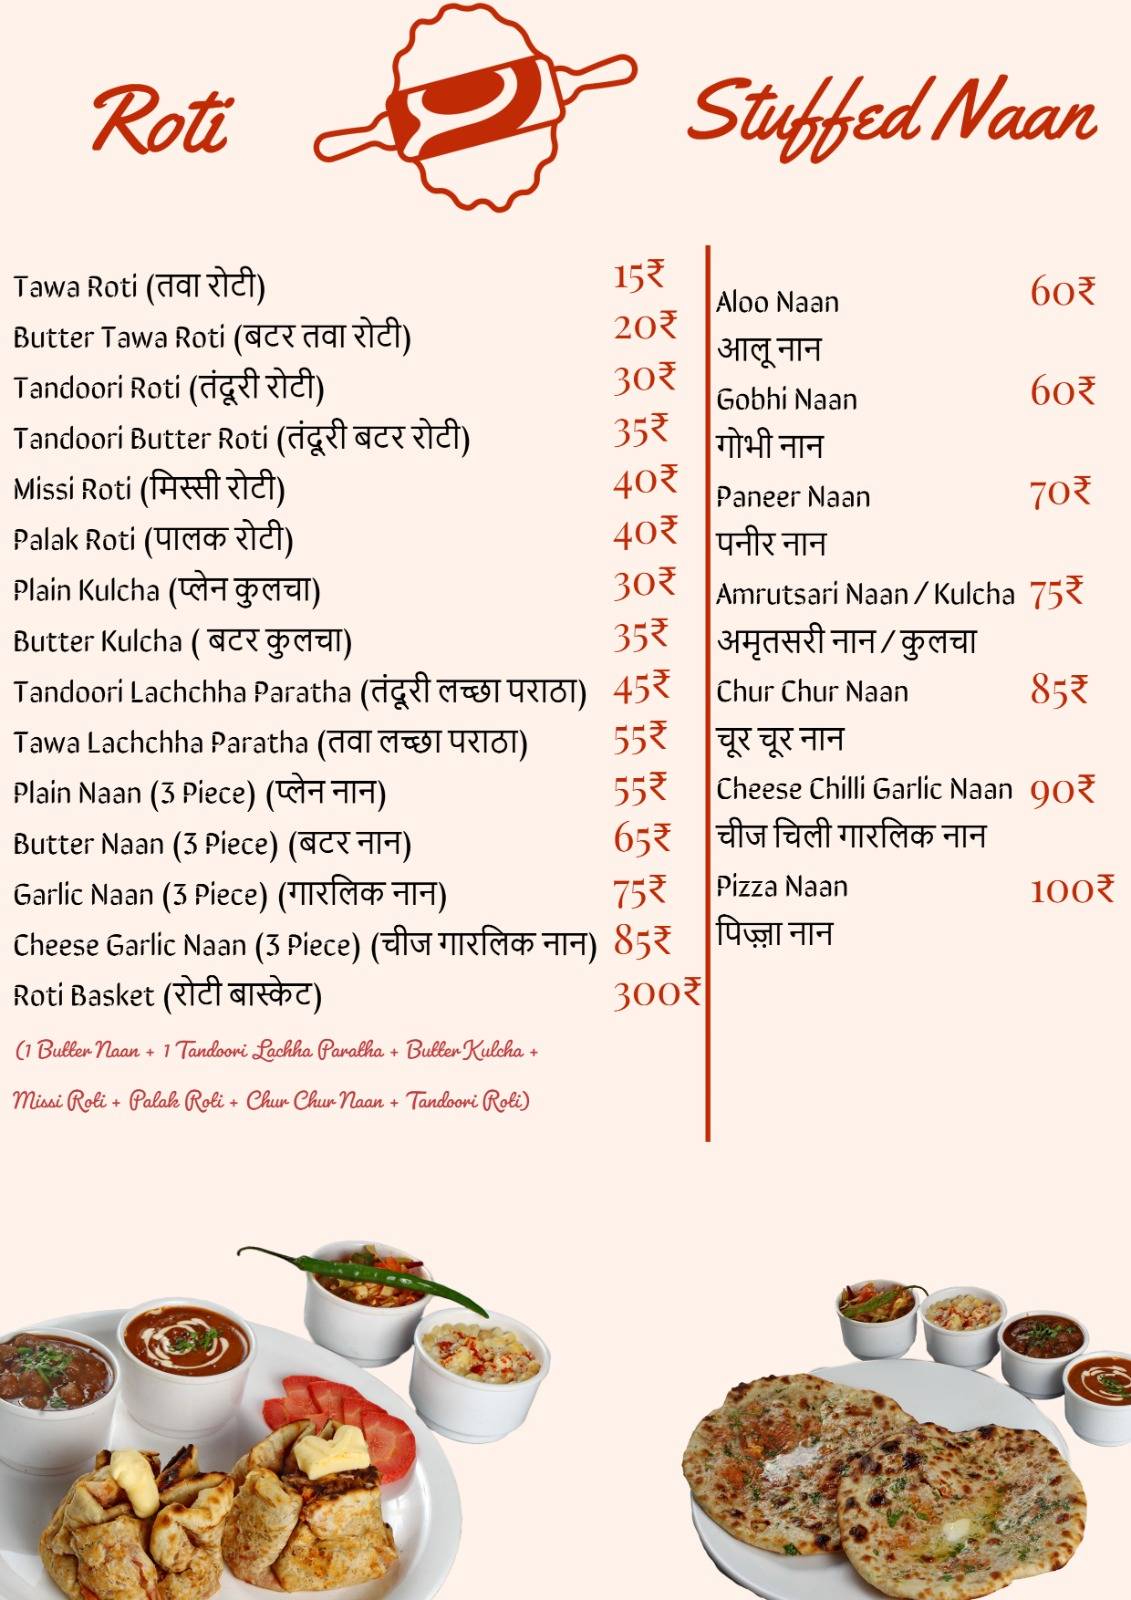 Roti
Stuffed Naan
Tawa Roti (तवा रोटी) 15₹
Butter Tawa Roti (बटर तवा रोटी) 20₹
Tandoori Roti (तंदूरी रोटी) 30₹
Tandoori Butter Roti (तंदूरी बटर रोटी) 35₹
Missi Roti (मिस्सी रोटी) 40₹
Palak Roti (पालक रोटी) 40₹
Plain Kulcha (प्लेन कुलचा) 30₹
Butter Kulcha ( बटर कुलचा) 35₹
Tandoori Lachchha Paratha (तंदूरी लच्छा पराठा) 45₹
Tawa Lachchha Paratha (तवा लच्छा पराठा) 55₹
Plain Naan (3 Piece) (प्लेन नान) 55₹
Butter Naan (3 Piece) (बटर नान) 65₹
Garlic Naan (3 Piece) (गारलिक नान) 75₹
Cheese Garlic Naan (3 Piece) (चीज गारलिक नान) 85₹
Roti Basket (रोटी बास्केट) 300₹
(1 Butter Naan + 1 Tandoori Lachha Paratha + Butter Kulcha +
Missi Roti + Palak Roti + Chur Chur Naan + Tandoori Roti)
Aloo Naan 60₹
आलू नान
Gobhi Naan 60₹
गोभी नान
Paneer Naan 70₹
पनीर नान
Amrutsari Naan / Kulcha 75₹
अमृतसरी नान / कुलचा
Chur Chur Naan 85₹
चूर चूर नान
Cheese Chilli Garlic Naan 90₹
चीज चिली गारलिक नान
Pizza Naan 100₹
पिज़्ज़ा नान